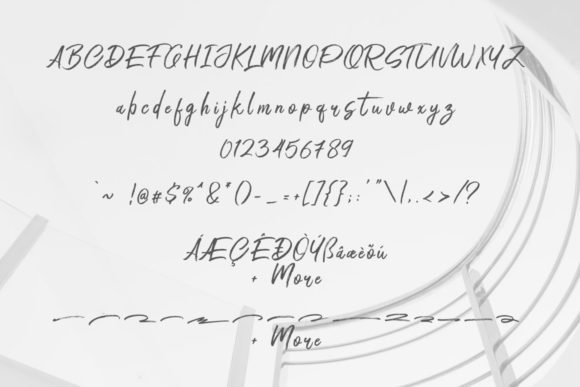 ABCDEFGHIJKLMNOPQRSTUVWXYZ
abcdefghijklmnopqrstuvwxyz
0123456789
`~ !@#$%^&*()-_=+[]{};:'"\|,.<>/?
ÁÆÇÉÐÒÝßâæèõú
+ More
+ More